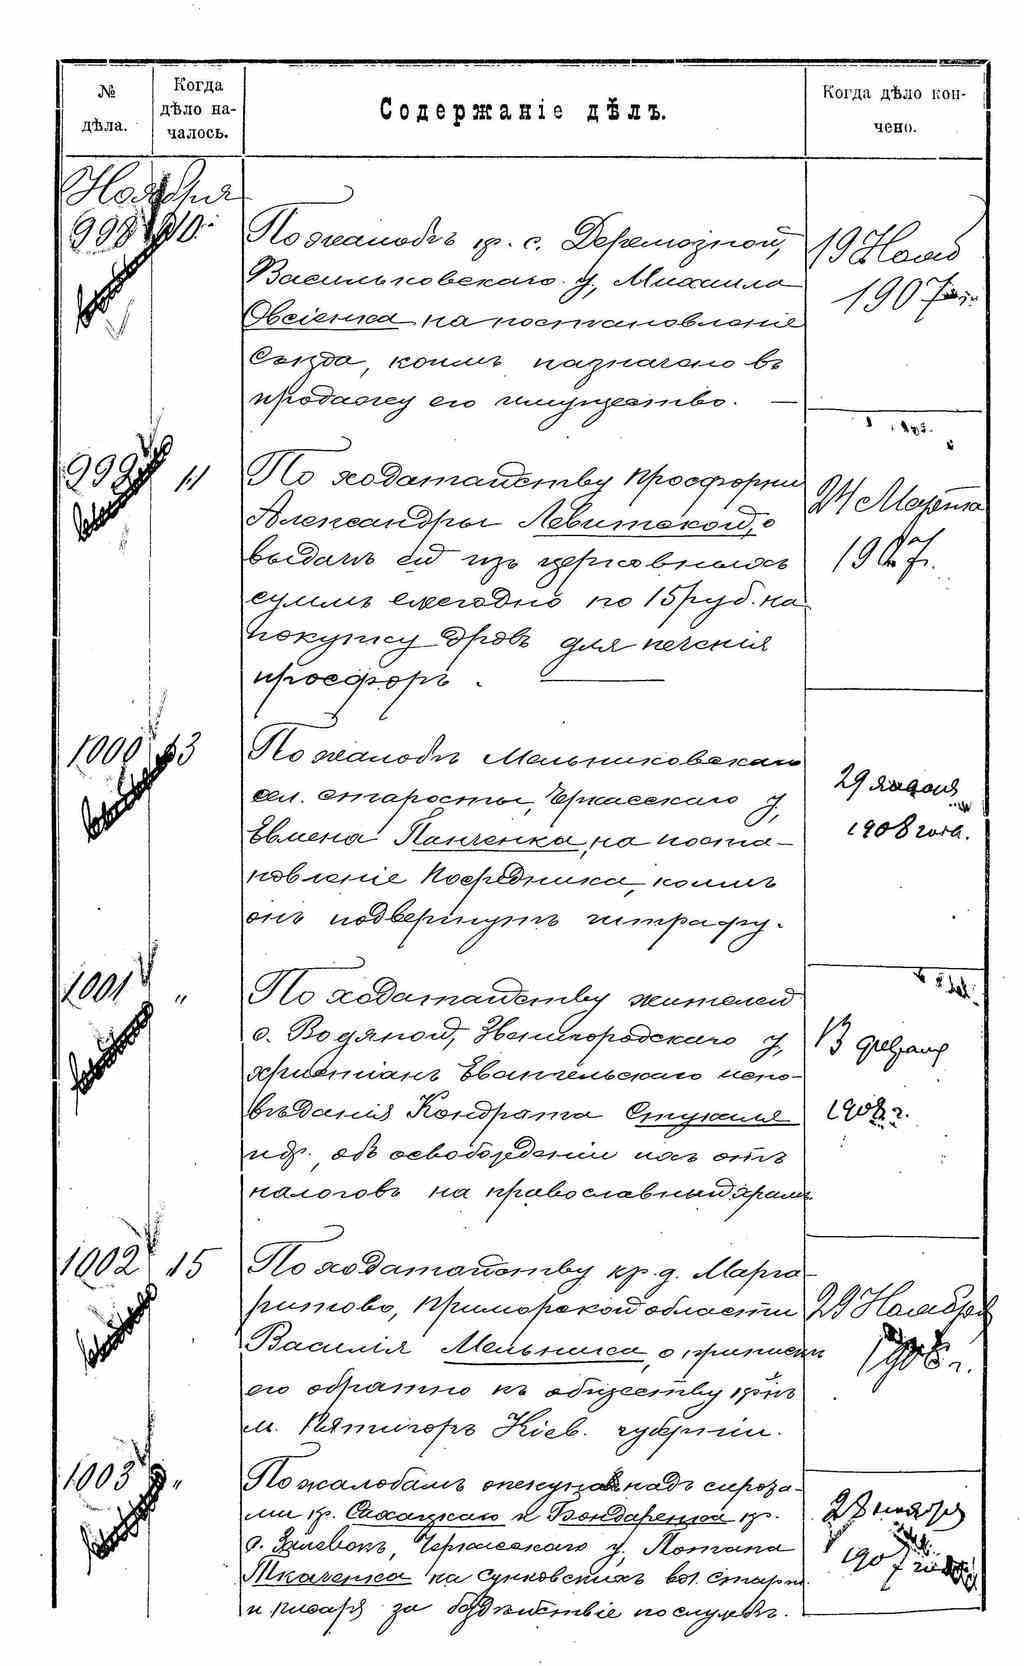 № дѣла.
Когда дѣло на-
чалось.
Содержаніе дѣлъ.
Когда дѣло кон-
чено.
Ноября
998 10.
По жалобѣ кр. с. Деремозной,
Васильковскаго у, Михаила
Овсіенка на постановленіе
Съѣзда, коимъ назначено въ
продажу его имущество. —
19 Нояб
1907 г.
999 11
По ходатайству просфорни
Александры Левитской, о
выдачѣ ей изъ церковныхъ
суммъ ежегодно по 15 руб. на
покупку дровъ для печенія
просфоръ.
24 Марта
1907.
1000 13
По жалобѣ Мельниковскаго
сел. старосты, Черкасскаго у,
Евмена Панченка, на поста-
новленіе Посредника, коимъ
онъ подвергнутъ штрафу.
29 января
1908 года.
1001 "
По ходатайству жителей
с. Водяной, Звенигородскаго у,
христіанъ Евангельскаго испо-
вѣданія Кондрата Стукаля
и др., объ освобожденіи ихъ отъ
налоговъ на православный храмъ.
13 февраля
1908 г.
1002 15
По ходатайству кр. д. Марга-
ритово, Приморской области
Василія Мельника, о припискѣ
его обратно къ обществу кр-нъ
м. Пятигоръ Кіев. губерніи.
29 Ноября
1908 г.
1003 "
По жалобамъ опекуна надъ сирота-
ми кр. Сахацкаго и Бондаренка кр.
с. Залевокъ, Черкасскаго у, Потапа
Ткаченка на Сунковскихъ вол. старш.
и писаря за бездѣйствіе по службѣ.
28 ноября
1907 года